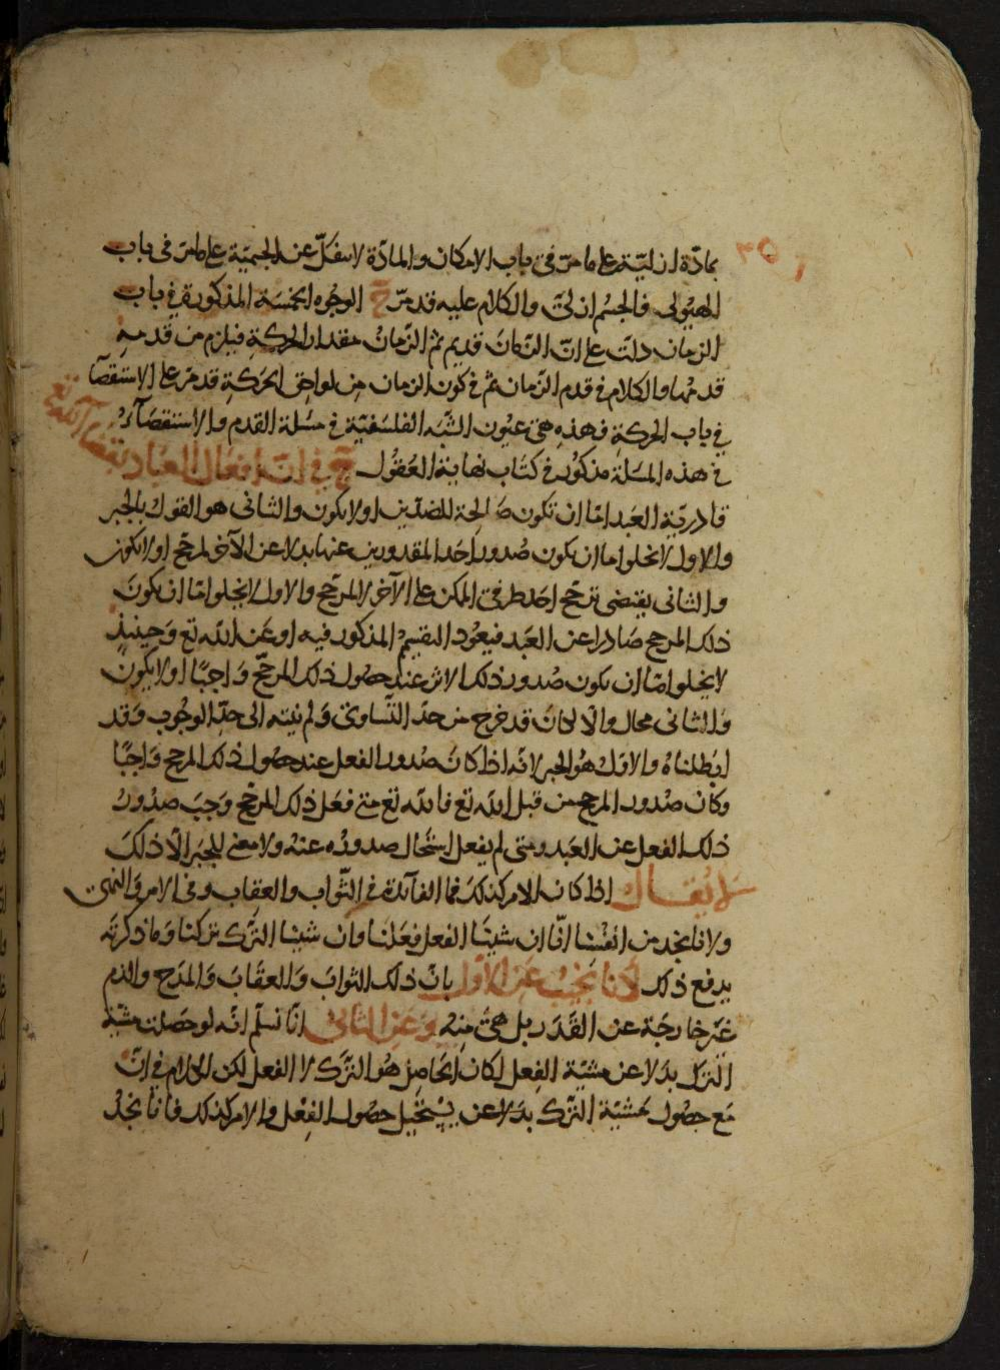 بمادة ازلية على ما مر في باب الامكان والمادة لا تنفك عن الجسمية على ما مر في باب
الهيولى فالجسم ازلي والكلام عليه قد مرّ ح الوجوه الخمسة المذكورة في باب
الزمان دلت على انّ الزمان قديم ثم الزمان مقدار الحركة فيلزم من قدمه
قدمها والكلام في قدم الزمان ثم في كون الزمان من لواحق الحركة قد مر على الاستقصآ
في باب الحركة فهذه هي عيون الشبه الفلسفية في مسئلة القدم والاستقصآء
في هذه المسئلة مذكور في كتاب نهاية العقول ج في انّ افعال العباد بقضاء الله تع
قادرية العبد امّا ان تكون صالحة للضدّين او لا يكون والثاني هو القول بالجبر
والاول لا يخلوا اما ان يكون صدور احد المقدورين عنها بدلا عن الآخر لمرجح او لا يكون
والثاني يقتضي ترجح احد طرفي الممكن على الآخر لا لمرجح والاول لا يخلوا امّا ان يكون
ذلك المرجح صادرا عن العبد فيعود التقسيم المذكور فيه او عن الله تع وحينئذٍ
لا يخلوا امّا ان يكون صدور ذلك الاثر عند حصول ذلك المرجح واجبًا او لا يكون
والثاني محال والا لكان قد خرج من حدّ التساوي ولم ينته الى حدّ الوجوب وقد
ابطلناه والاول هو الجبر لانه اذا كان صدور الفعل عند حصول ذلك المرجح واجبًا
وكان صدور المرجح من قبل الله تع فالله تع متى فعل ذلك المرجح وجب صدور
ذلك الفعل عن العبد ومتى لم يفعل استحال صدوره عنه ولا معنى للجبر الّا ذلك
لا يقال اذا كان الامر كذلك فما الفآئدة في الثواب والعقاب وفي الامر والنهي
ولانا نجد من انفسنا انّا ان شينا الفعل فعلنا وان شينا الترك تركنا وما ذكرته
يدفع ذلك لانا نجيب عن الاول بانّ ذلك الثواب والعقاب والمدح والذم
غير خارجة عن القدر بل هي منه وعن الثاني انا نسلّم انه لو حصلت مشية
الترك بدلا عن مشية الفعل لكان الحاصل هو الترك لا الفعل لكن الكلام في انّ
مع حصول مشية الترك بدلا عن يستحيل حصول الفعل والامر كذلك فانا نجد